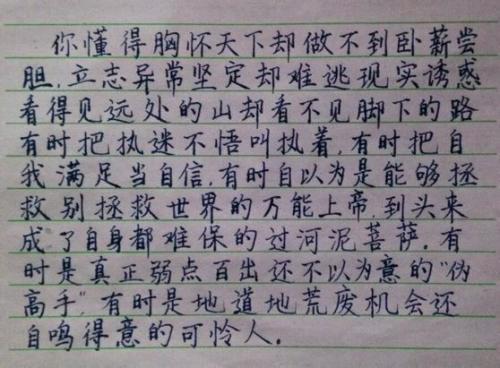 你懂得胸怀天下却做不到卧薪尝
胆,立志异常坚定却难逃现实诱惑
看得见远处的山却看不见脚下的路
有时把执迷不悟叫执着,有时把自
我满足当自信,有时自以为是能够拯
救别拯救世界的万能上帝,到头来
成了自身都难保的过河泥菩萨。有
时是真正弱点百出还不以为意的"伪
高手",有时是地道地荒废机会还
自鸣得意的可怜人。